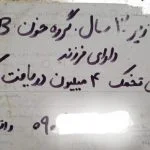 زیر ۳۰ سال. گروه خون B
دارای فرزند
تخمک ۴ میلیون دریافت
۰۹۰